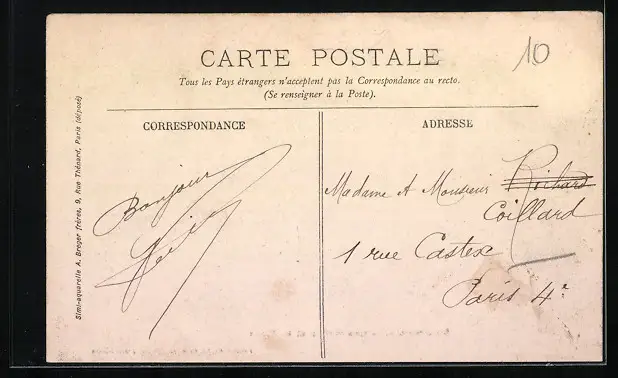 CARTE POSTALE
10
Tous les Pays étrangers n'acceptent pas la Correspondance au recto.
(Se renseigner à la Poste).
CORRESPONDANCE
Bonjour
Simi-aquarelle A. Breger frères, 9, Rue Thénard, Paris (déposé)
ADRESSE
Madame et Monsieur Richard
Coillard
1 rue Castex
Paris 4e